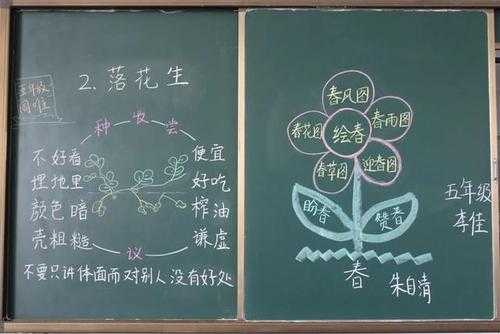 五年级
2.落花生
种 收 尝
不好看
埋地里
颜色暗
壳粗糙
便宜
好吃
榨油
谦虚
议
不要只讲体面而对别人没有好处
春风图
春花图
绘春
春雨图
春草图
迎春图
盼春
赞春
春
朱自清
五年级
李佳